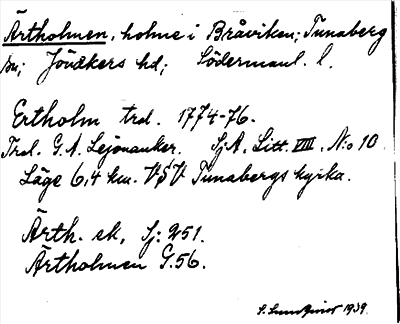 Ärtholmen, holme i Bråviken; Tunaberg
sn; Jönåkers hd; Södermanl. l.
Ertholm trol. 1774-76.
Trol. G. A. Lejonanker. Sj.A. Litt. VIII. N:o 10.
Läge 6,4 km. VSV Tunabergs kyrka.
Ärth. ek, Sj: 251.
Ärtholmen G.56.
1939.